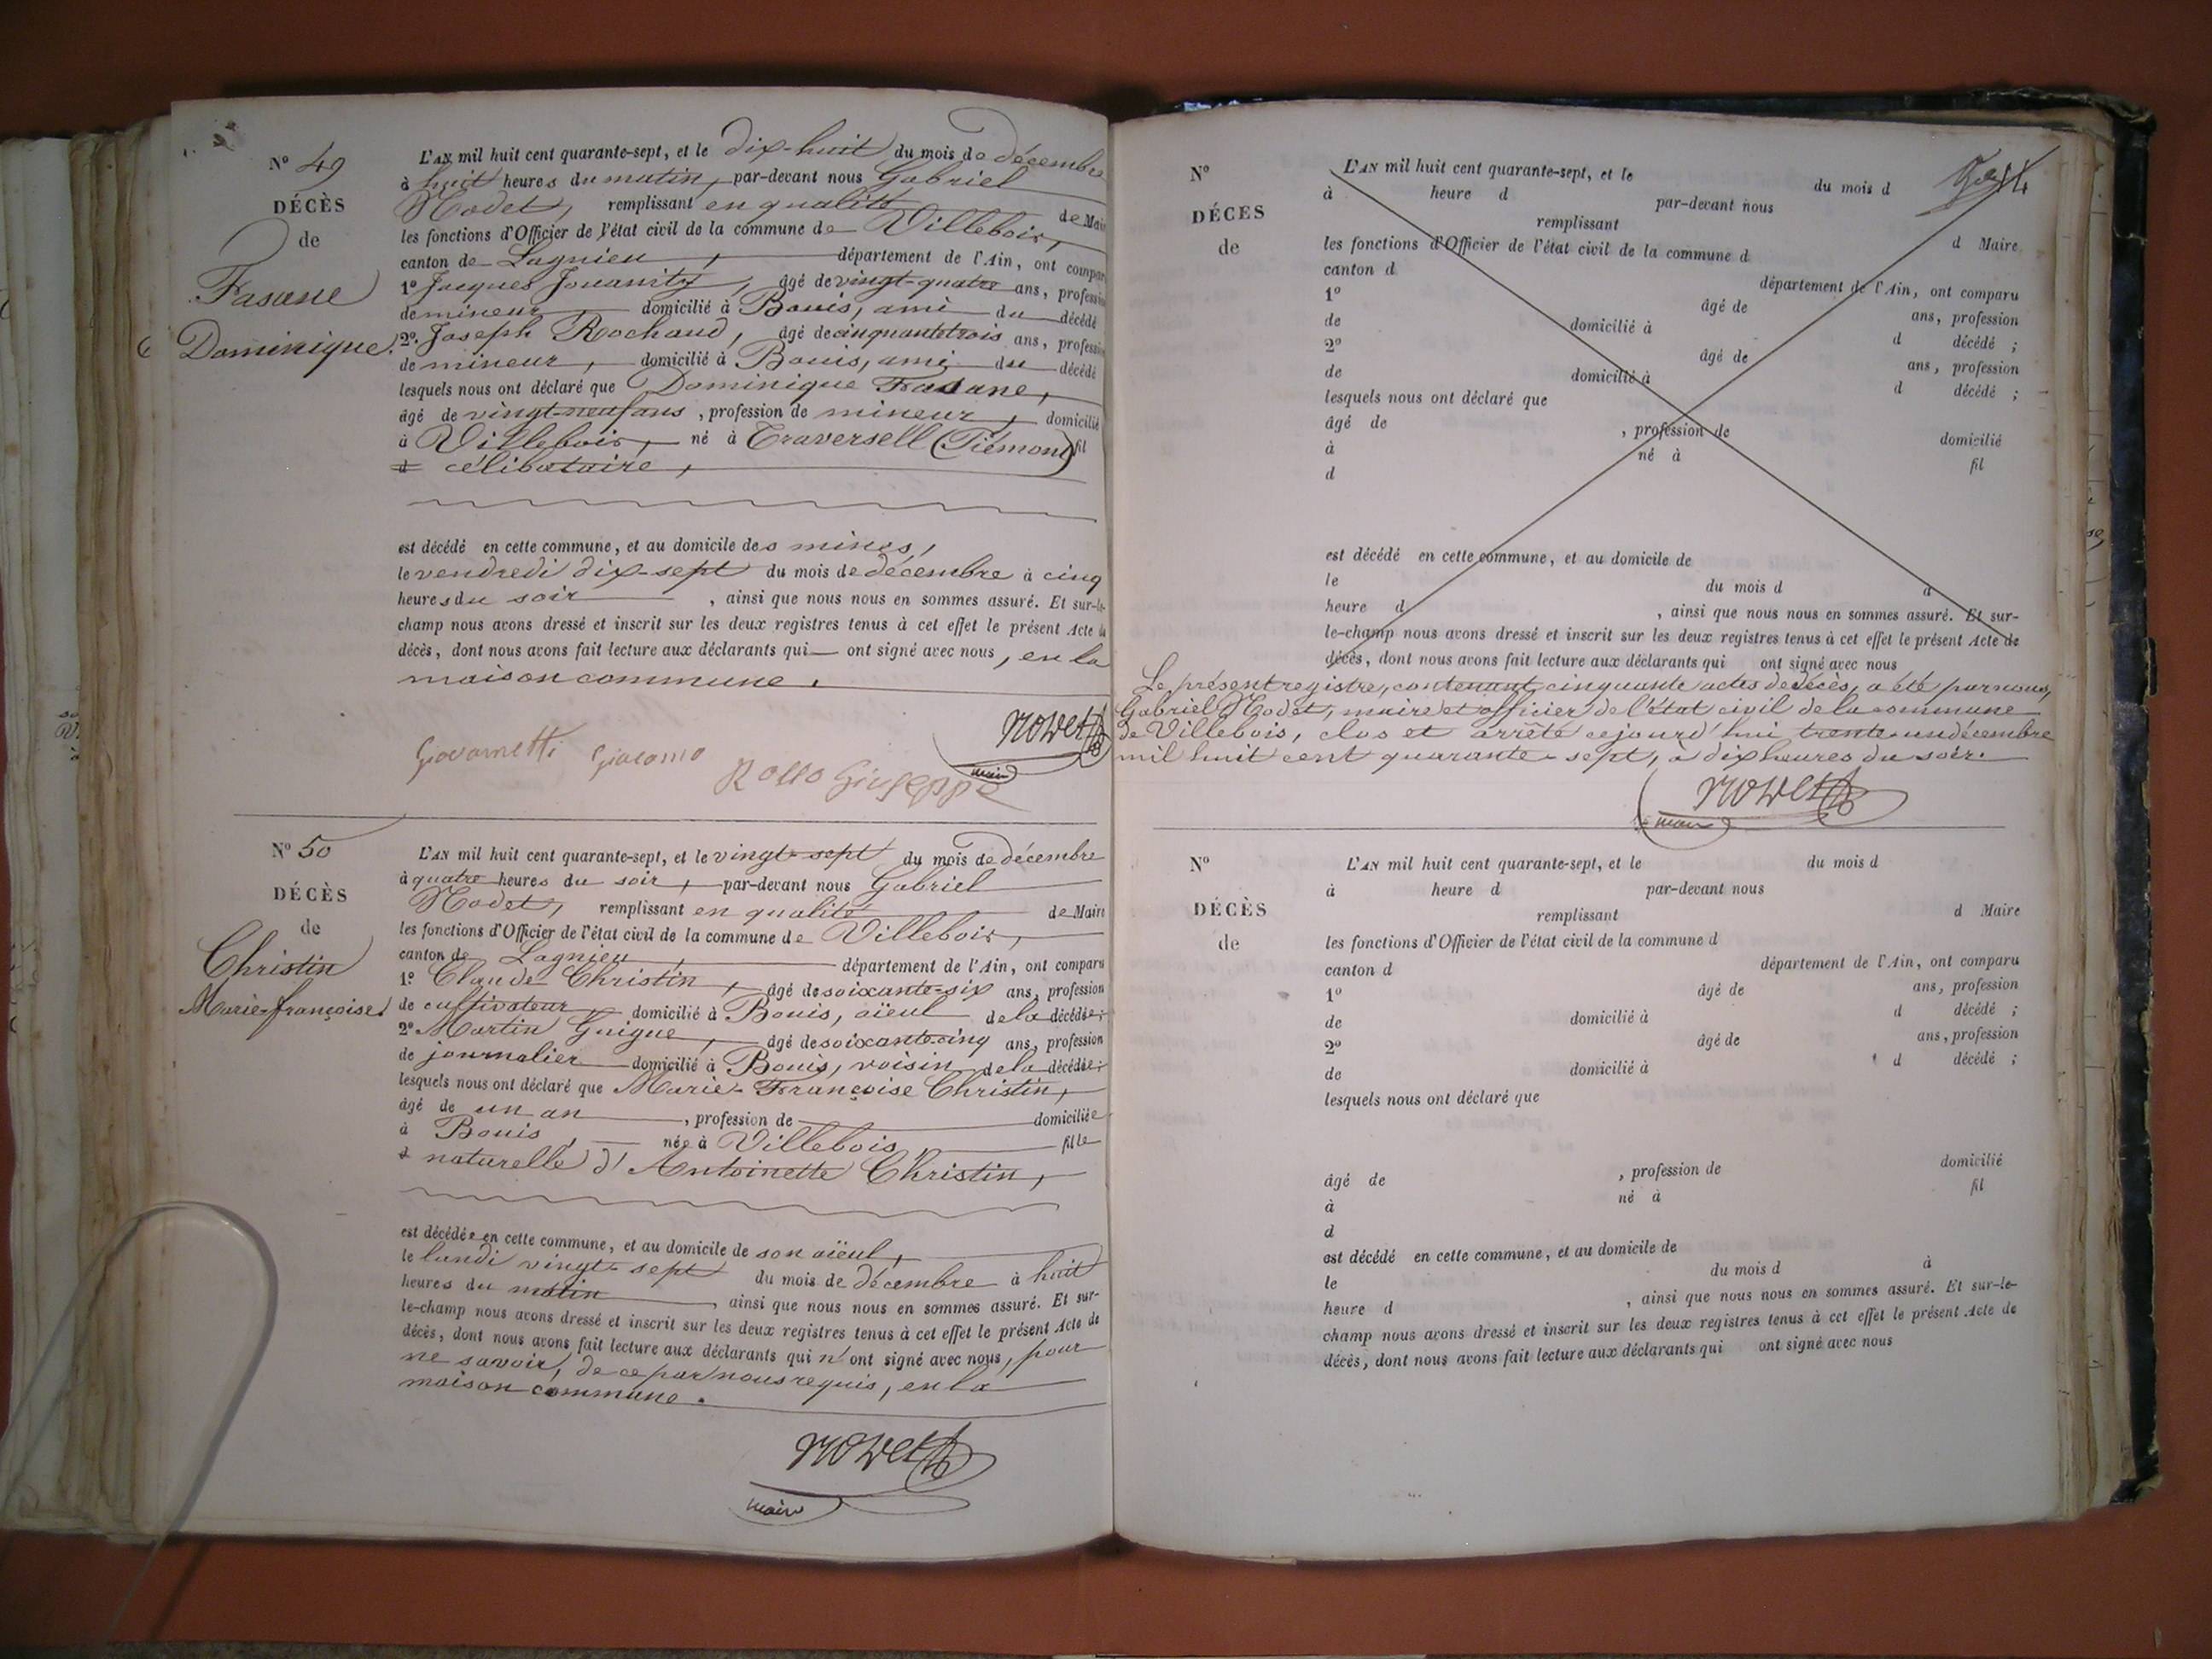 N° 49
DÉCÈS
de
Fasane
Dominique.
L'AN mil huit cent quarante-sept, et le dix-huit du mois de décembre
à huit heures du matin, par-devant nous Gabriel
Nodet, remplissant en qualité de Maire
les fonctions d'Officier de l'état civil de la commune de Villebois,
canton de Lagnieu, département de l'Ain, ont compar
1° Jacques Jouanitz, âgé de vingt-quatre ans, profession
de mineur, domicilié à Bouis, ami du décédé
2°. Joseph Rochaud, âgé de cinquante trois ans, profession
de mineur, domicilié à Bouis, ami du décédé
lesquels nous ont déclaré que Dominique Fasane,
âgé de vingt-neuf ans, profession de mineur, domicilié
à Villebois, né à Traversell (Piémont) fil
d célibataire,
est décédé en cette commune, et au domicile des mines,
le vendredi dix-sept du mois de décembre à cinq
heures du soir, ainsi que nous nous en sommes assuré. Et sur-le-
champ nous avons dressé et inscrit sur les deux registres tenus à cet effet le présent Acte de
décès, dont nous avons fait lecture aux déclarants qui ont signé avec nous, en la
maison commune.
Giovanetti Giacomo Rosso Giuseppe Nodet
maire
N° 50
DÉCÈS
de
Christin
Marie-françoise
L'AN mil huit cent quarante-sept, et le vingt-sept du mois de décembre
à quatre heures du soir, par-devant nous Gabriel
Nodet, remplissant en qualité de Maire
les fonctions d'Officier de l'état civil de la commune de Villebois,
canton de Lagnieu, département de l'Ain, ont comparu
1° Claude Christin, âgé de soixante-six ans, profession
de cultivateur, domicilié à Bouis, aïeul de la décédée;
2° Martin Guigue, âgé de soixante-cinq ans, profession
de journalier domicilié à Bouis, voisin de la décédée;
lesquels nous ont déclaré que Marie-Françoise Christin,
âgé de un an, profession de domiciliée
à Bouis, née à Villebois, fille
d naturelle d'Antoinette Christin,
est décédée en cette commune, et au domicile de son aïeul,
le lundi vingt-sept du mois de décembre à huit
heures du matin, ainsi que nous nous en sommes assuré. Et sur-
le-champ nous avons dressé et inscrit sur les deux registres tenus à cet effet le présent Acte de
décès, dont nous avons fait lecture aux déclarants qui n'ont signé avec nous, pour
ne savoir, de ce par nous requis, en la
maison commune.
Nodet
maire
N°
DÉCÈS
de
L'AN mil huit cent quarante-sept, et le du mois d
à heure d par-devant nous
remplissant d Maire
les fonctions d'Officier de l'état civil de la commune d
canton d département de l'Ain, ont comparu
1° âgé de ans, profession
de domicilié à d décédé ;
2° âgé de ans, profession
de domicilié à d décédé ;
lesquels nous ont déclaré que
âgé de , profession de domicilié
à né à fil
d
est décédé en cette commune, et au domicile de
le du mois d à
heure d , ainsi que nous nous en sommes assuré. Et sur-
le-champ nous avons dressé et inscrit sur les deux registres tenus à cet effet le présent Acte de
décès, dont nous avons fait lecture aux déclarants qui ont signé avec nous
Le présent registre, contenant cinquante actes de décès, a été par nous,
Gabriel Nodet, maire et officier de l'état civil de la commune
de Villebois, clos et arrêté cejourd'hui trente-un décembre
mil huit cent quarante-sept, à dix heures du soir.
Nodet
maire
N°
DÉCÈS
de
L'AN mil huit cent quarante-sept, et le du mois d
à heure d par-devant nous
remplissant d Maire
les fonctions d'Officier de l'état civil de la commune d
canton d département de l'Ain, ont comparu
1° âgé de ans, profession
de domicilié à d décédé ;
2° âgé de ans, profession
de domicilié à d décédé ;
lesquels nous ont déclaré que
âgé de , profession de domicilié
à né à fil
d
est décédé en cette commune, et au domicile de
le du mois d à
heure d , ainsi que nous nous en sommes assuré. Et sur-le-
champ nous avons dressé et inscrit sur les deux registres tenus à cet effet le présent Acte de
décès, dont nous avons fait lecture aux déclarants qui ont signé avec nous